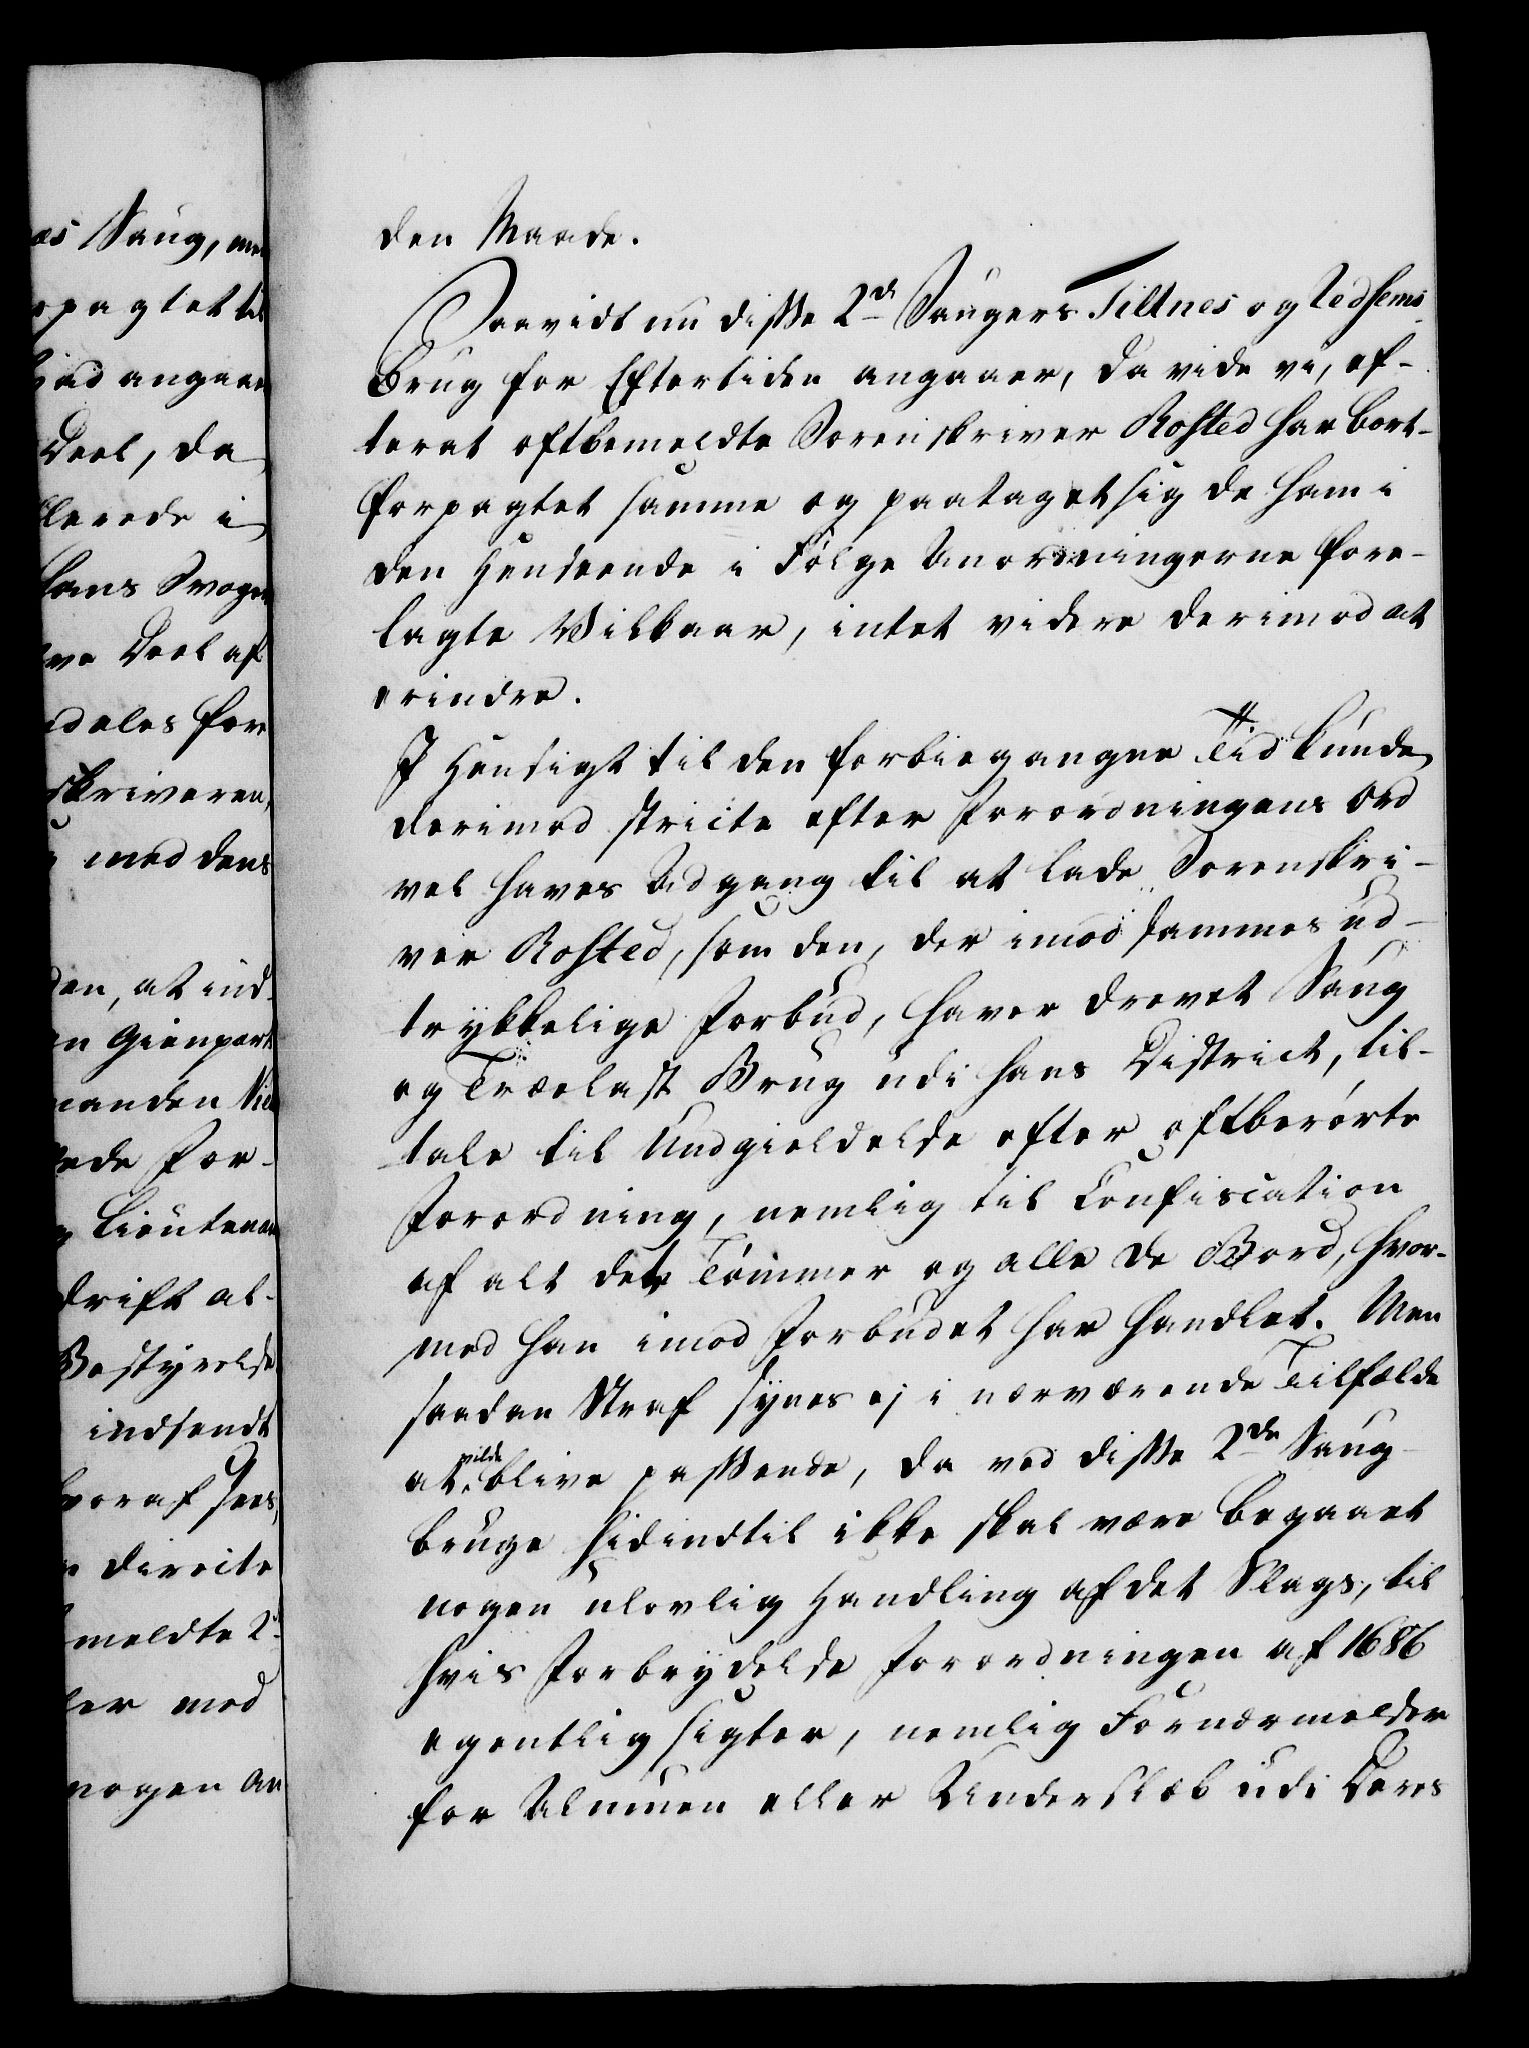 æs Saug, men
rpagtet til
Hvad angaaer
Deel, da
llerede i
hans Svoger
lve Deel af
udeles for
skriveren,
med dens
den, at ind-
en Gienpart
manden Nie
Rede For-
Lieutenan
drift al-
Bestyrelse
indsendt
hvoraf sees,
directe
meldte 2de
ler med
nogen An
den Maade.
Saavidt nu disse 2de Saugers Tiltnes og Vedsems
Brug for Eftertiden angaaer, da vide vi, ef-
terat oftbemeldte Sorenskriver Rosted har bort-
forpagtet samme og paataget sig de ham i
den Henseende i Følge Anordningerne fore-
lagte Vilkaar, intet videre derimod at
erindre.
I Hensigt til den forbiegangne Tid kunde
derimod stricte efter Forordningens Ord
vel haves Adgang til at lade Sorenskri-
ver Rosted, som den, der imod sammes ud-
trykkelige Forbud, haver drevet Saug
og Trælast Brug udi hans District, til-
tale til Undgieldelse efter oftberørte
Forordning, nemlig til Confiscation
af alt det Tømmer og alle de Bord, hvor-
med han imod Forbudet har handlet. Men
saadan Straf synes ej i nærværende Tilfælde
at vilde blive passende, da ved disse 2de Saug-
bruge hidindtil ikke skal være begaaet
nogen ulovlig Handling af det Slags, til
hvis Forbrydelse Forordningen af 1686
egentlig sigter, nemlig Fornærmelser
for Almuen eller Underslæb udi Deres